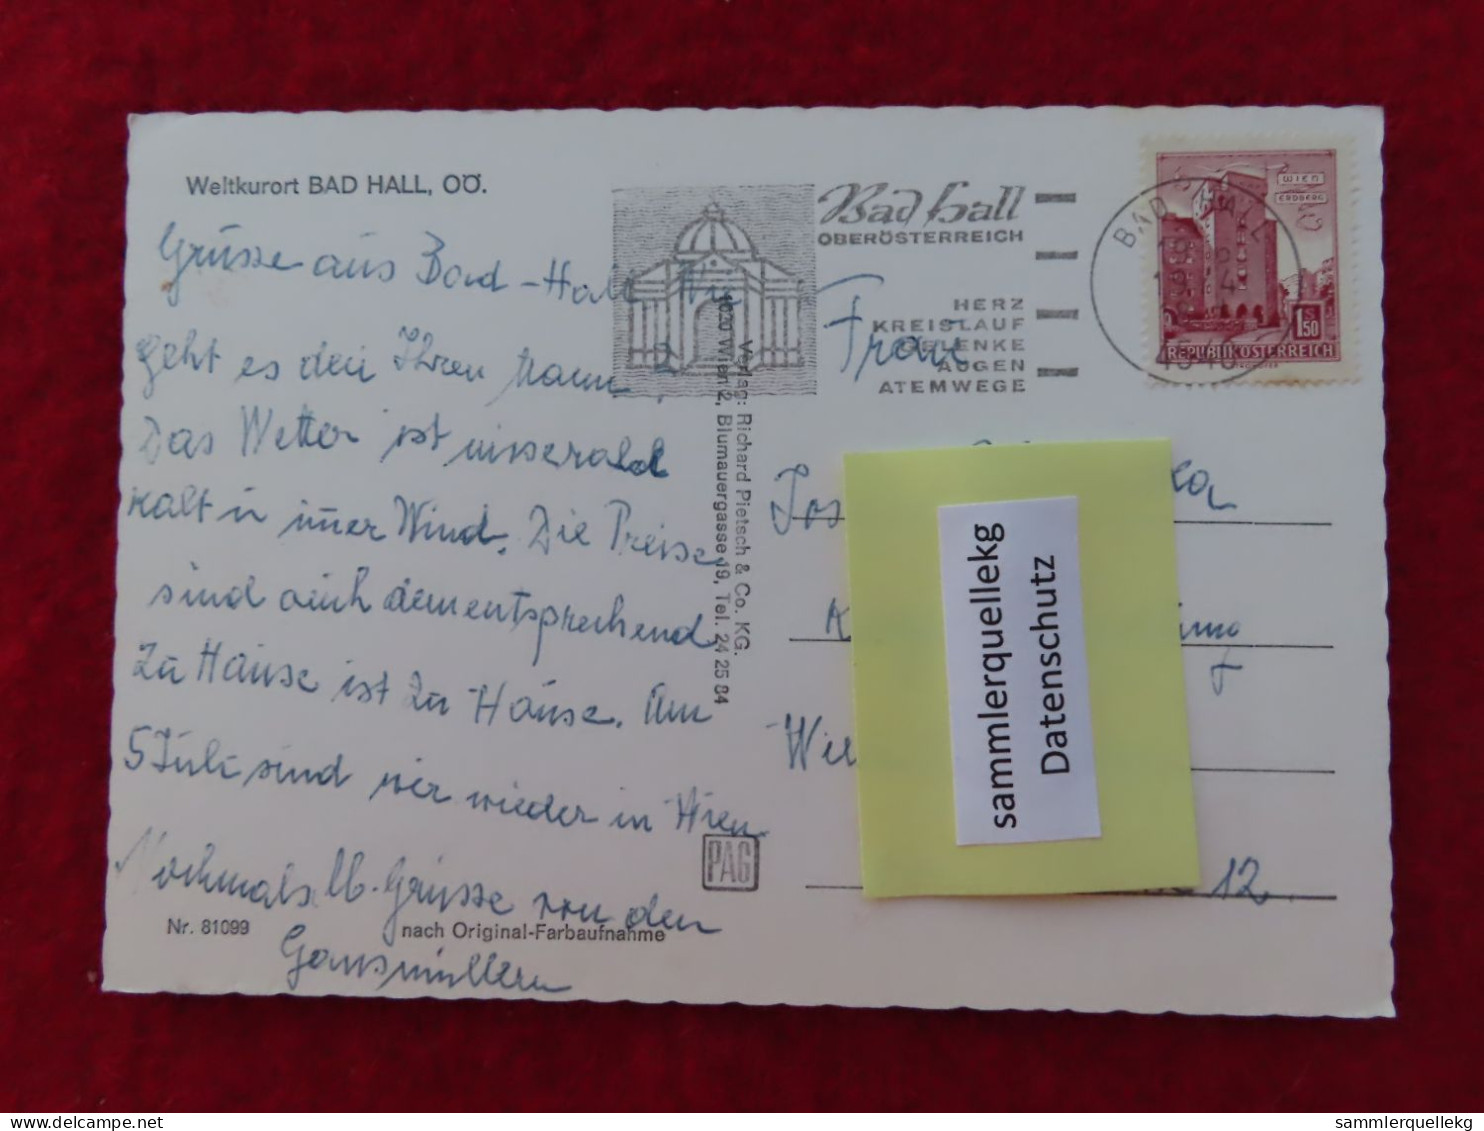 Weltkurort BAD HALL, OÖ.
Grüsse aus Bad-Hall Wie
geht es den Ihren Mann?
Das Wetter ist misserabl
kalt u immer Wind. Die Preise
sind auch dementsprechend
Zu Hause ist Zu Hause. Am
5 Juli sind wir wieder in Wien
Nochmals lb. Grüsse von den
Nr. 81099
nach Original-Farbaufnahme
Verlag: Richard Pietsch & Co. KG.
1020 Wien 2, Blumauergasse 19, Tel. 24 25 84
PAG
Bad Hall
OBERÖSTERREICH
HERZ
KREISLAUF
GELENKE
AUGEN
ATEMWEGE
BAD HALL
4540
WIEN
ERDBERG
1.50
REPUBLIK ÖSTERREICH
Frau
Jos
K
Wie
12.
sammlerquellekg
Datenschutz
sammlerquellekg